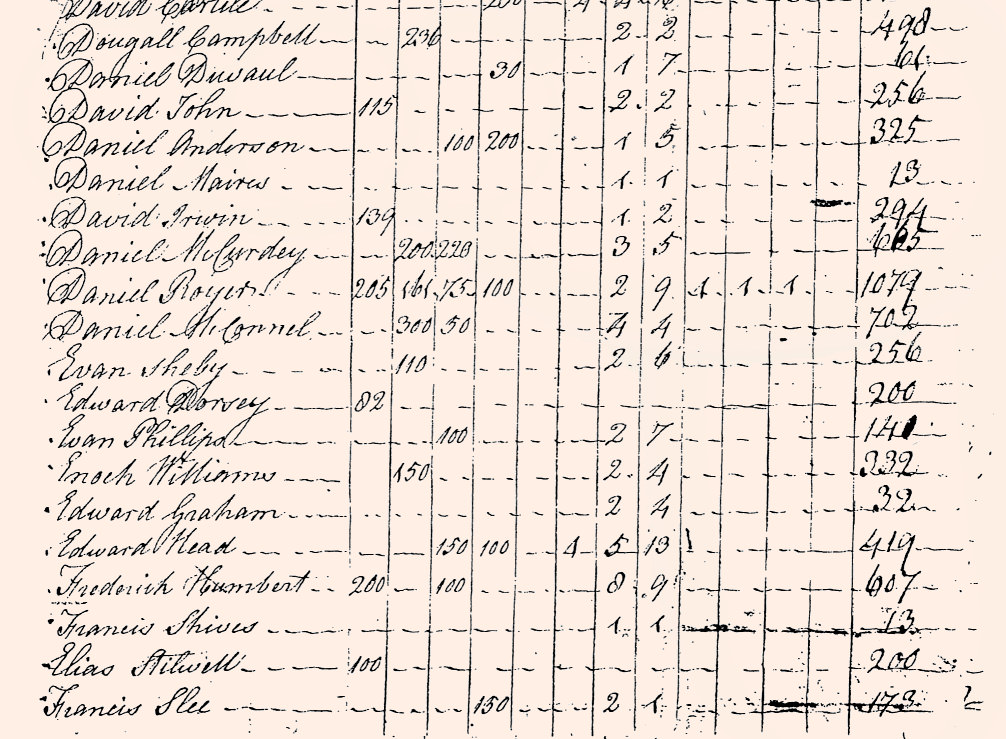 David Carlile 200 4 4 16
Dougall Campbell 236 2 2 498
Daniel Duvaul 30 1 7 61
David John 115 2 2 256
Daniel Anderson 100 200 1 5 325
Daniel Maires 1 1 13
David Irwin 139 1 2 294
Daniel McCurdey 200 220 3 5 665
Daniel Royer 205 161 75 100 2 9 1 1 1 1079
Daniel McConnel 300 50 4 4 702
Evan Sheby 110 2 6 256
Edward Dorsey 82 200
Evan Phillips 100 2 7 141
Enoch Williams 150 2 4 332
Edward Graham 2 4 32
Edward Head 150 100 4 5 13 1 419
Frederick Humbert 200 100 8 9 607
Francis Shives 1 1 13
Elias Stilwell 100 200
Francis Slee 150 2 1 173